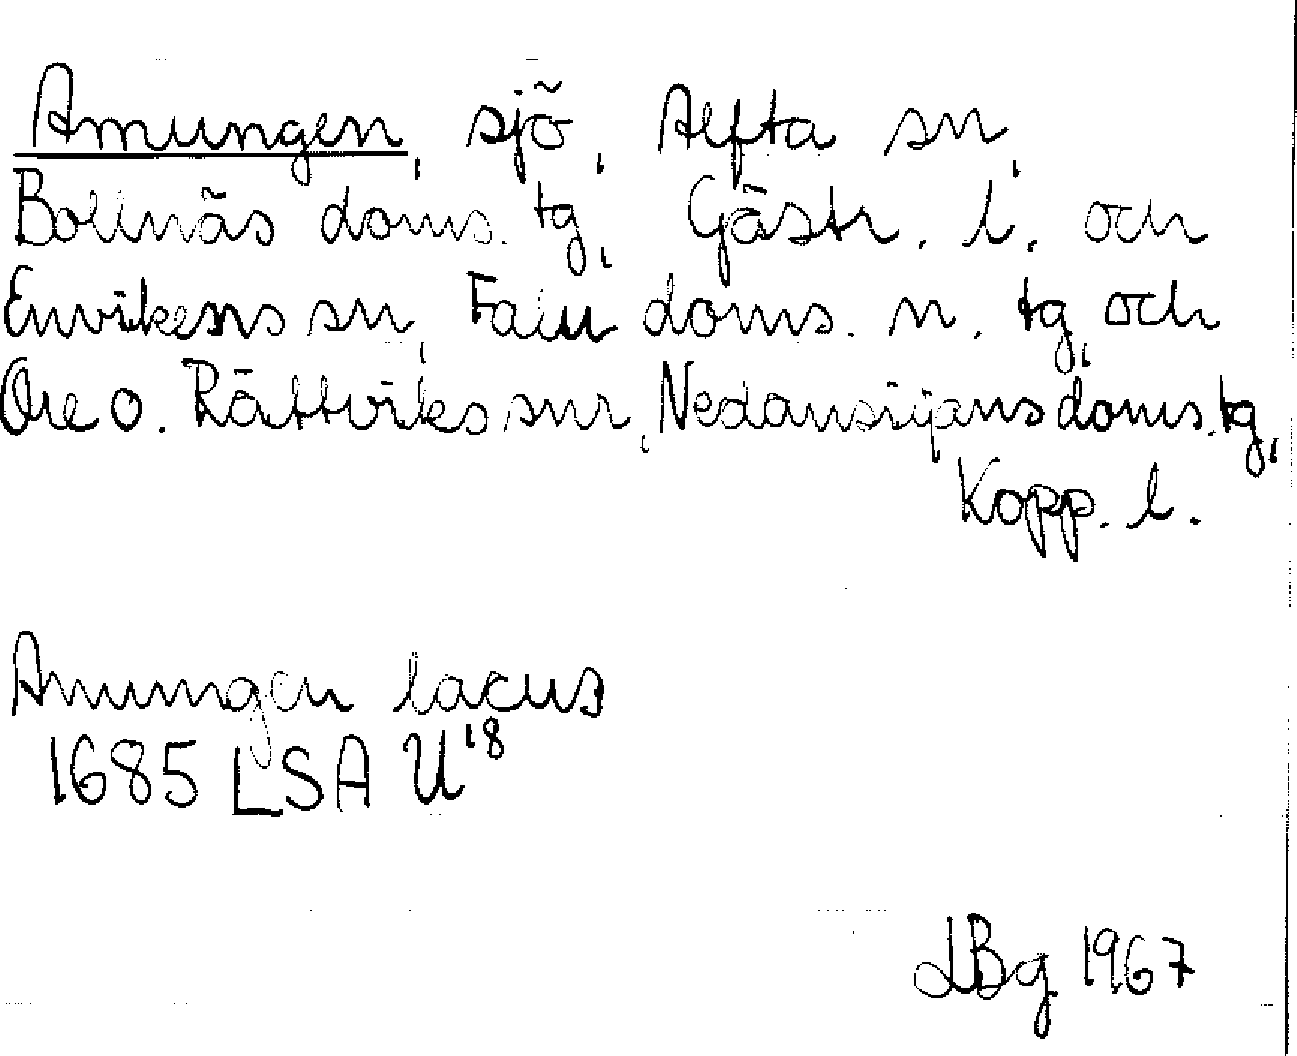 Amungen, sjö, Alfta sn,
Bollnäs doms. tg, Gästr. l. och
Envikens sn, Falu doms. n. tg, och
Ore o. Rättviks snr, Nedansiljans doms. tg,
Kopp. l.
Amungen lacus
1685 LSA U18
LBg 1967